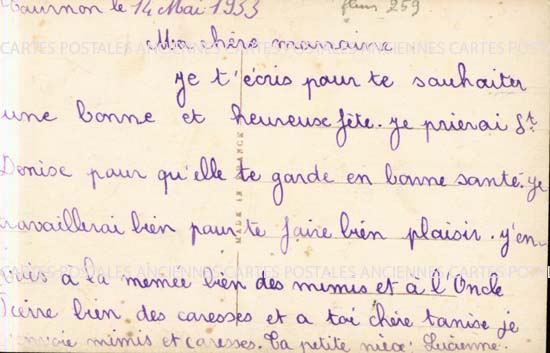 Tournon le 14 Mai 1933
fleurs 259
Ma chère marraine
je t'écris pour te souhaiter
une bonne et heureuse fête. je prierai St
Denise pour qu'elle te garde en bonne santé. je
travaillerai bien pour te faire bien plaisir. j'en
vois à la memée bien des mimis et à l'Oncle
Pierre bien des caresses et a toi chère tanise je
envoie mimis et caresses. Ta petite nièce Lucienne.
MADE IN FRANCE
CARTES POSTALES ANCIENNES CARTES POSTALES ANCIENNES
CARTES POSTALES ANCIENNES CARTES POSTALES ANCIENNES